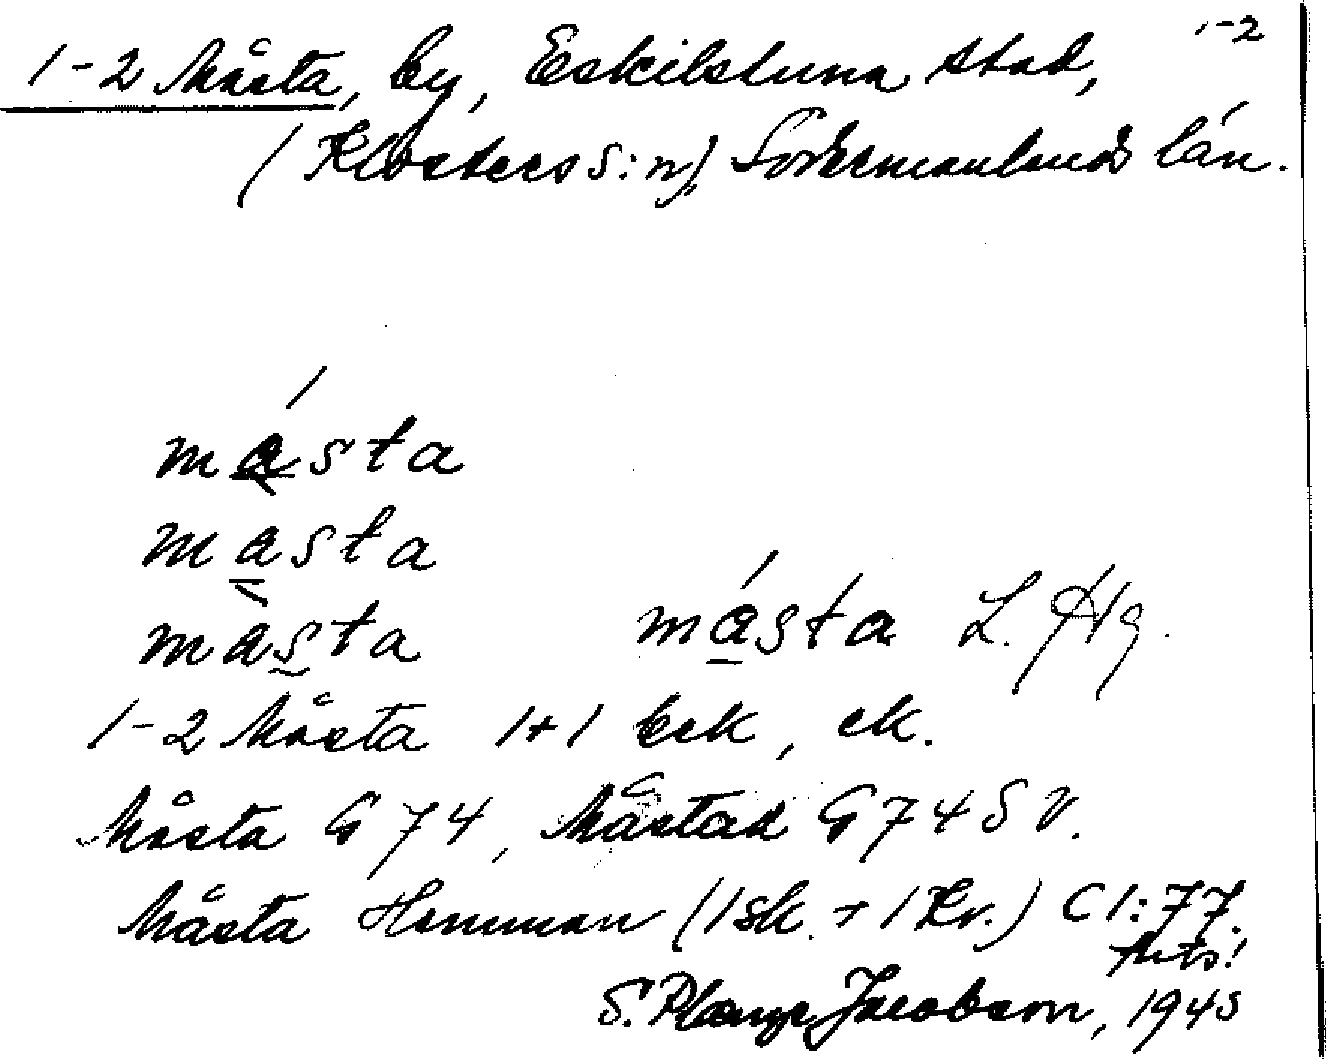 1-2
1-2 Måsta, by, Eskilstuna stad,
(Klosters s:n), Södermanlands län.
måsta
masta
måsta måsta L. Hg.
1-2 Måsta 1+1 bek, ek.
Måsta G 74, Måstad G 74 S V.
Måsta Hemman (1 sk. + 1 Kr.) C 1:77.
S. Jacobson, 1945